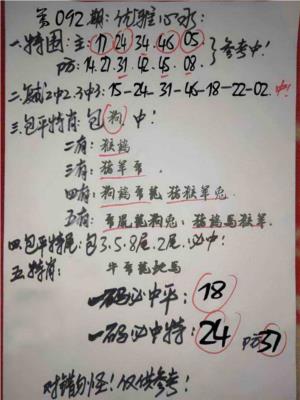 第092期:优雅心水:
一.特围:主:17 24 34 46 05 } 参考中!
防:14.21.31.42.45.08.
二.复式2中2.3中3:15-24-31-45-18-22-02.中!
三.包平特肖:包狗中!
二肖:猴鸡
三肖:猪羊
四肖:狗鸡 龙 猪猴羊兔.
五肖:龙狗兔;猪鸡马猴羊.
四.包平特尾:包3.5.8尾.2尾.必中:
五.特肖:牛 龙蛇马
一码必中平:18
一码必中特:24 防37
对错勿怪!仅供参考!